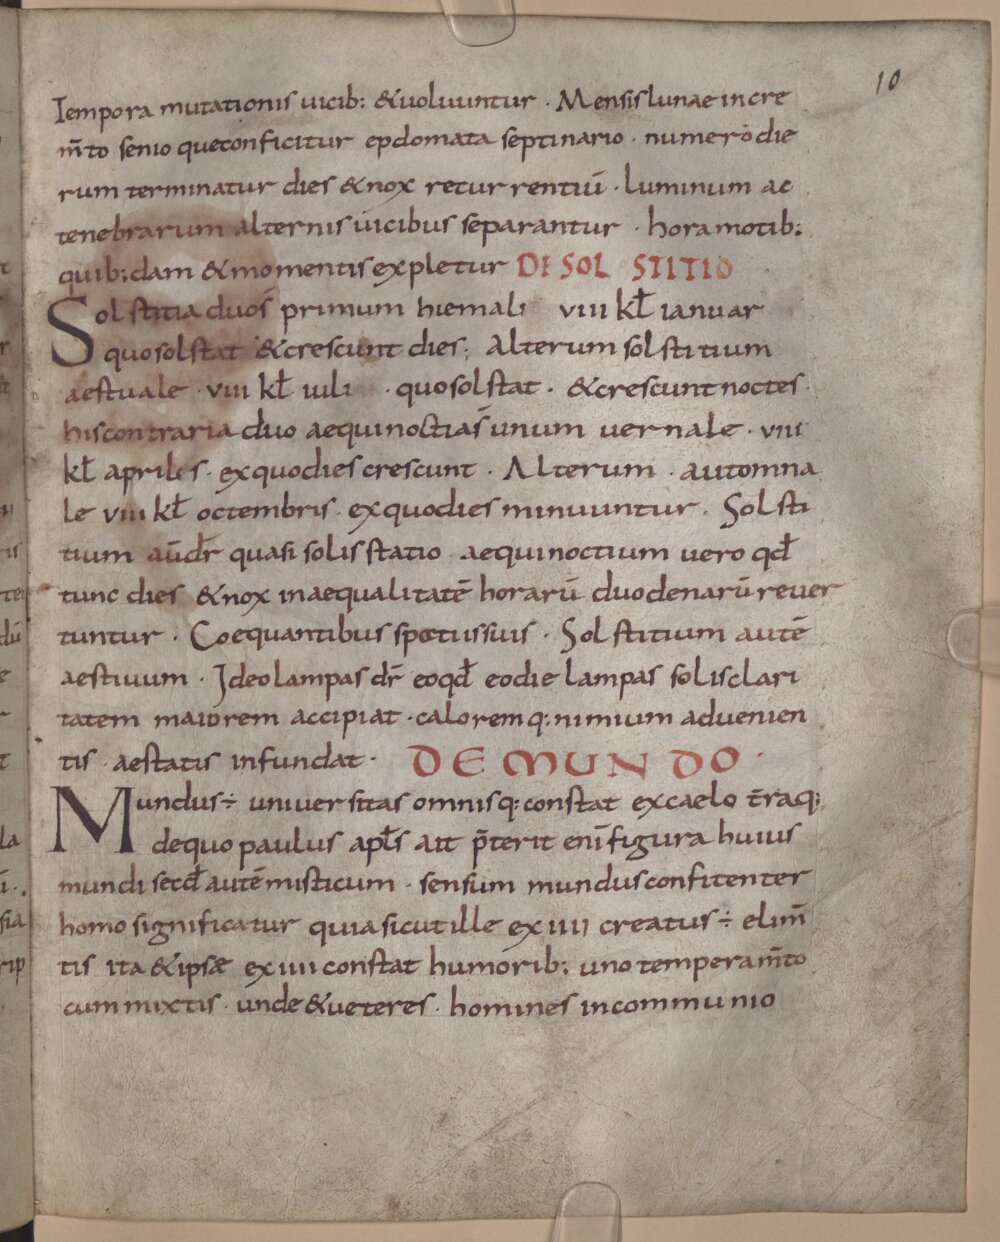 10
Tempora mutationis uicib: &uoluuntur · Mensis lunae incre
m̄to senio queconficitur epdomata septinario · numero die
rum terminatur dies &nox recurrentiū · luminum ac
tenebrarum alternis uicibus separantur · hora motib:
quib:dam &momentis expletur DE SOLSTITIO
Solstitia duos primum hiemali viii kł ianuar
quo sol stat &crescunt dies; Alterum solstitium
aestuale · viii kł iuli · quo sol stat · &crescunt noctes·
his contraria duo aequinoctias unum uernale · viii
kł apriles · ex quo dies crescunt · Alterum · automna
le viii kł octembris · ex quo dies minuuntur · Solsti
tium aūdr̄ quasi solis statio · aequinoctium uero qđ
tunc dies &nox inaequalitatē horarū duodenarū reuer
tuntur · Coequantibus spatiis suis · Solstitium autē
aestiuum · Ideo lampas dr̄ eoqđ eo die lampas solis clari
tatem maiorem accipiat · calorem q: nimium aduenien
tis · aestatis infundat · DE MUNDO ·
Mundus ÷ uniuersitas omnis q: constat ex caelo t̄raq;
de quo paulus apłs ait p̄terit enī figura huius
mundi secđ autē misticum · sensum mundus confitenter
homo significatur quia sicut ille ex iiii creatus ÷ elim̄
tis ita &ipsæ ex iiii constat humorib: uno temperam̄to
cummixtis · unde &ueteres · homines incommunio